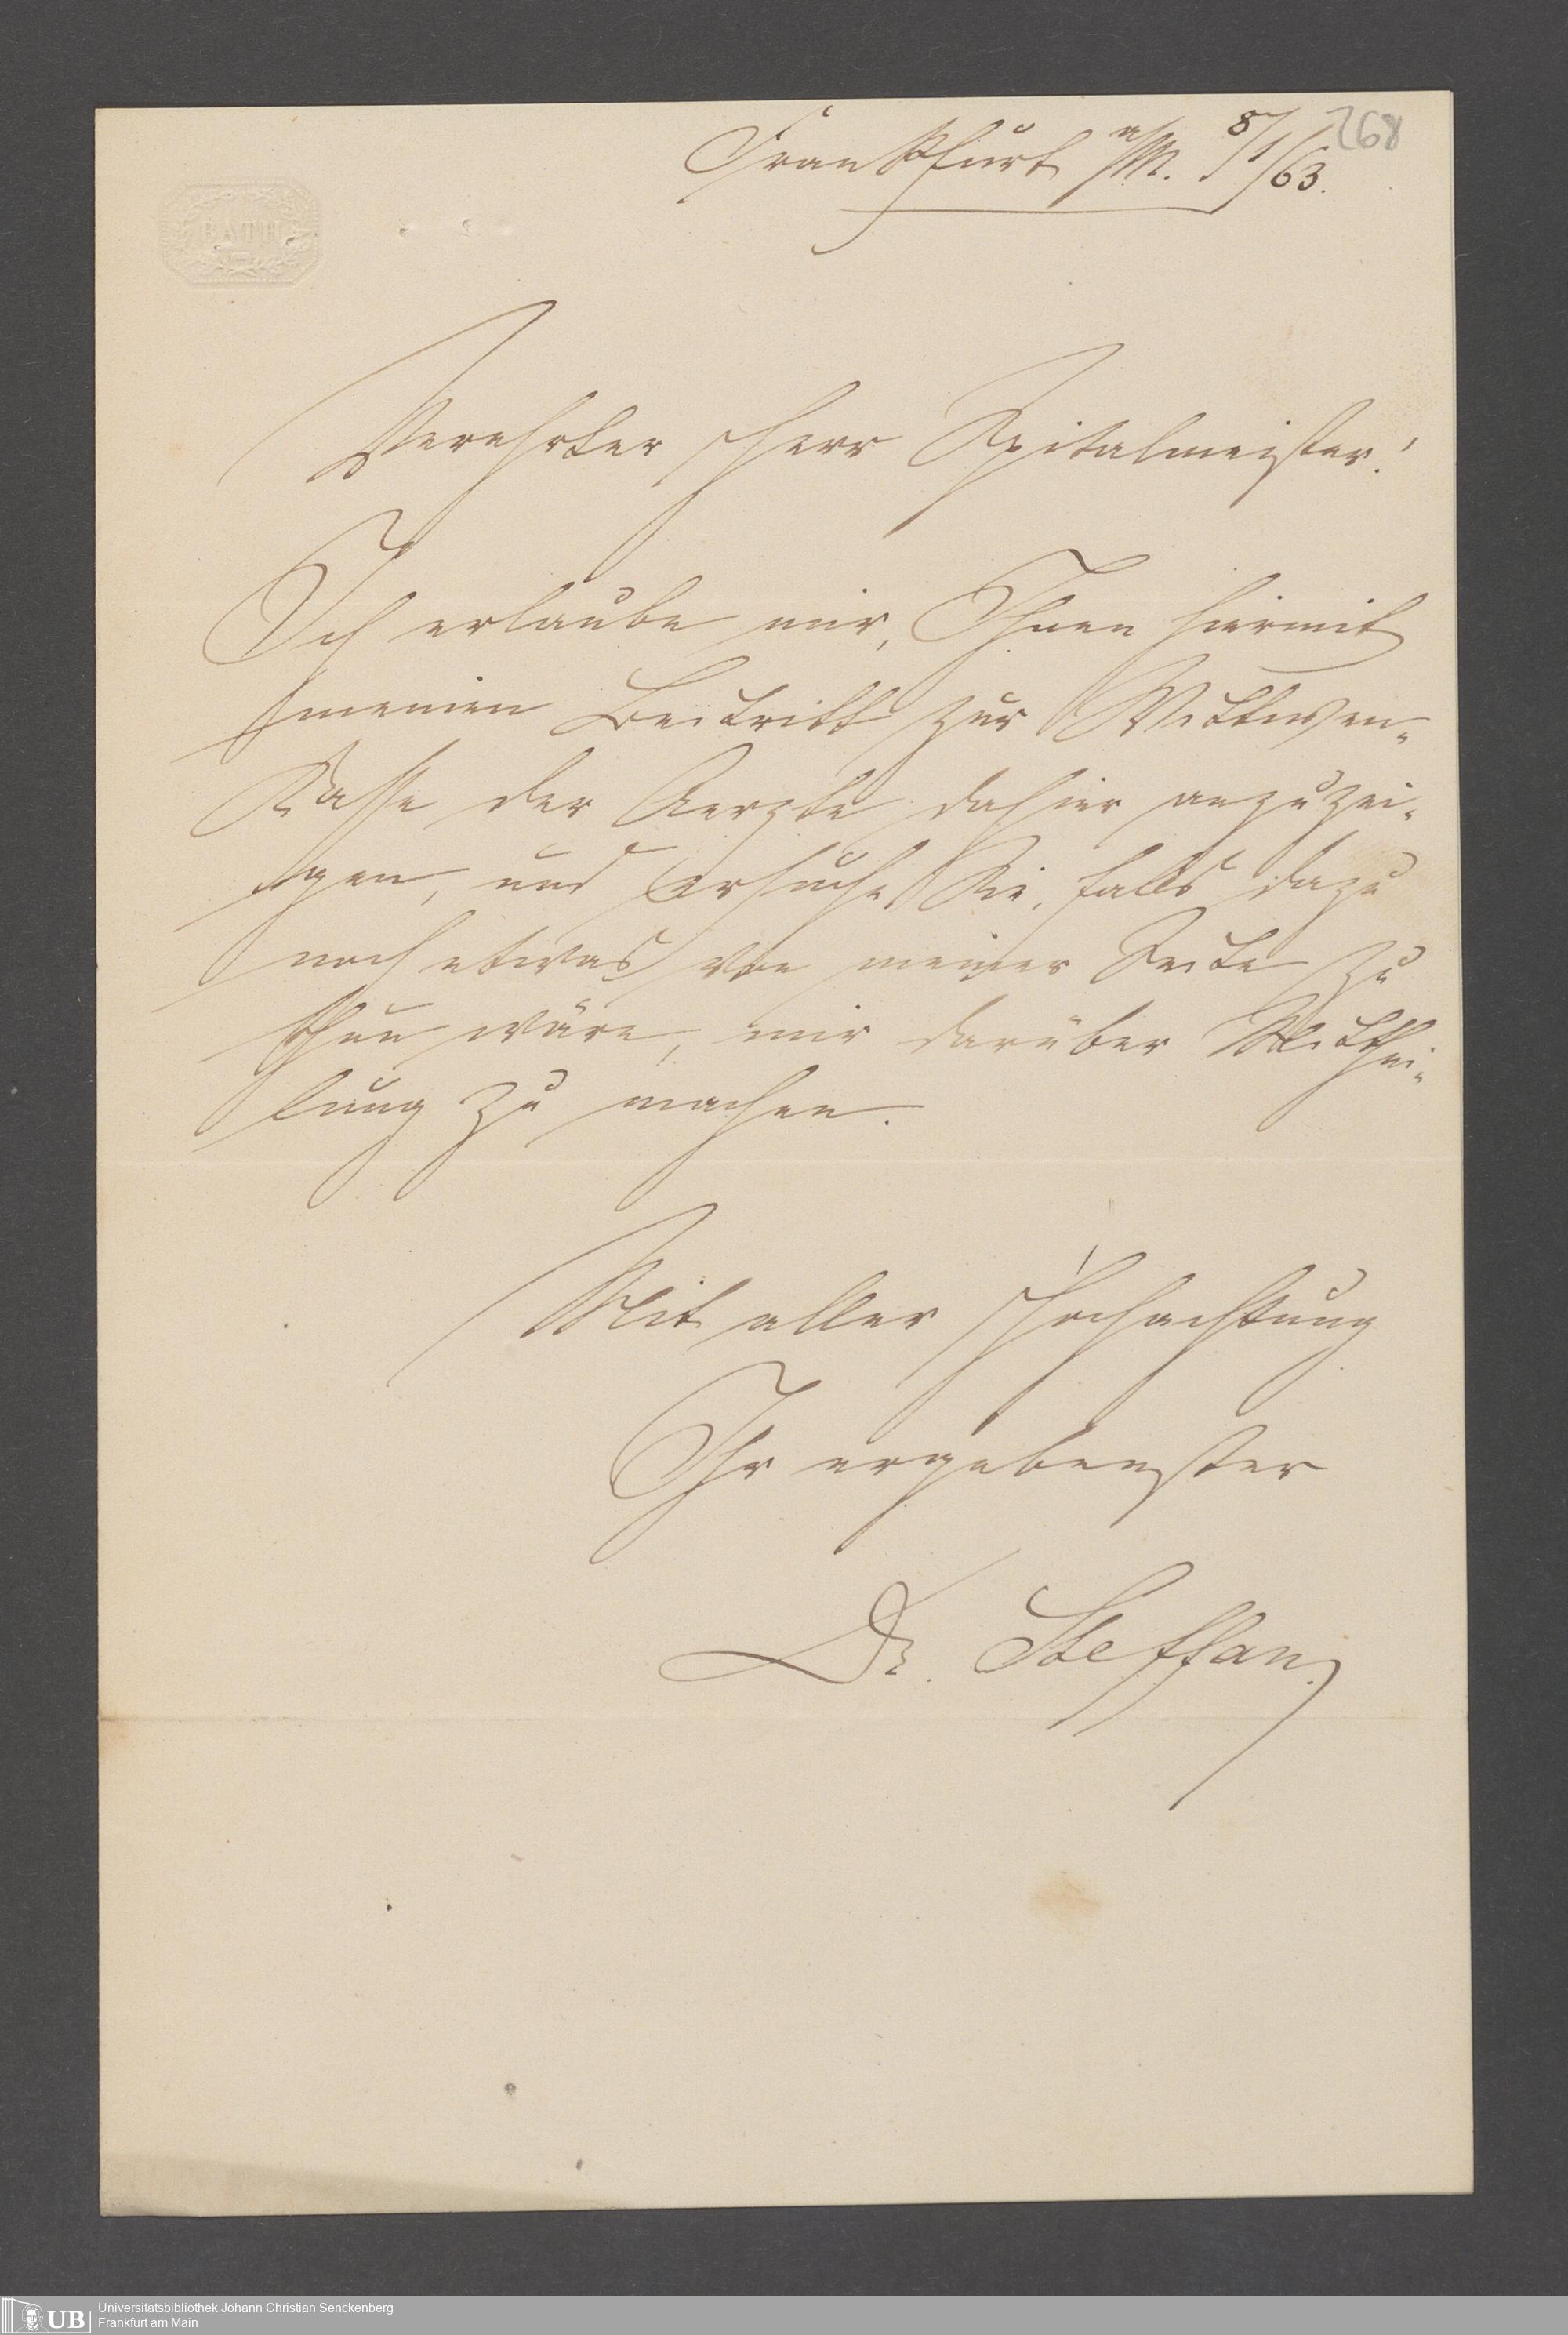 268
Frankfurt a/M. 8/1/63.
BATH
Verehrter Herr Spitalmeister!
Ich erlaube mir, Ihnen hiermit
meinen Beitritt zur Wittwen-
Kasse der Aerzte dahier anzuzei-
gen, und ersuche Sie, falls dazu
noch etwas von meiner Seite zu
thun wäre, mir darüber Mitthei-
lung zu machen.
Mit aller Hochachtung
Ihr ergebenster
Dr. Steffan.
UB
Universitätsbibliothek Johann Christian Senckenberg
Frankfurt am Main